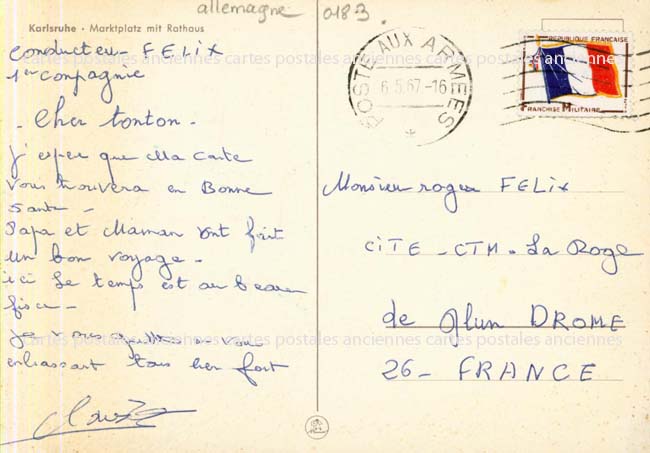 allemagne 0183.
Karlsruhe · Marktplatz mit Rathaus
conducteur FELIX
1er compagnie
- Cher tonton -
j'espere que Ma Carte
vous trouvera en Bonne
Sante -
Papa et Maman ont fait
un bon voyage -
ici Le temps est au beau
fisce -
je vous quitte en vous
enbrassant tous bien fort
POSTE AUX ARMEES
6.5.67-16
REPUBLIQUE FRANCAISE
FRANCHISE MILITAIRE
Monsieur roger FELIX
CITE - CTM - La Roge
de Glun DROME
26 - FRANCE
cartes postales anciennes cartes postales anciennes cartes postales anciennes
cartes postales anciennes cartes postales anciennes cartes postales anciennes